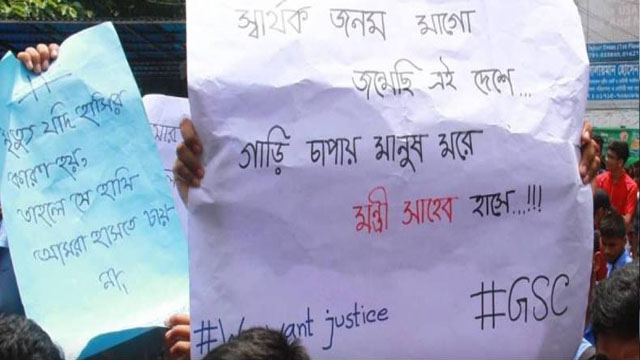 মৃত্যু যদি হাসির
কারণ হয়,
তাহলে সে হাসি
আমরা হাসতে চায়
না,
স্বার্থক জনম মাগো
জন্মেছি এই দেশে...
গাড়ি চাপায় মানুষ মরে
মন্ত্রী সাহেব হাসে...!!!
#GSC
#We want justice